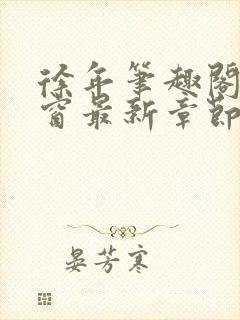 徐年笔趣阁
窗最新章节
晏芳寒